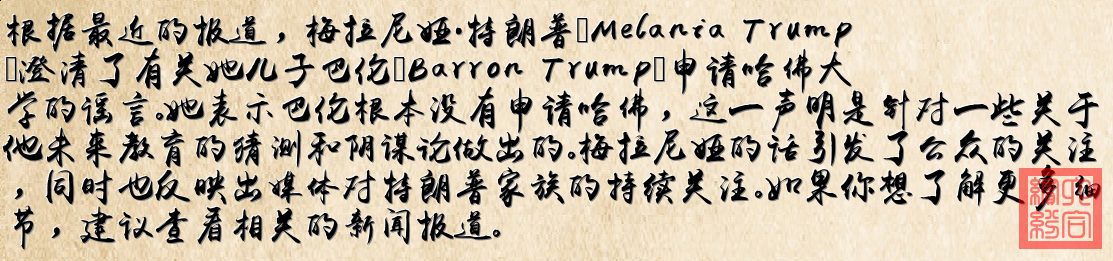 根据最近的报道，梅拉尼娅·特朗普□Melania Trump
□澄清了有关她儿子巴伦□Barron Trump□申请哈佛大
学的谣言。她表示巴伦根本没有申请哈佛，这一声明是针对一些关于
他未来教育的猜测和阴谋论做出的。梅拉尼娅的话引发了公众的关注
，同时也反映出媒体对特朗普家族的持续关注。如果你想了解更多细
节，建议查看相关的新闻报道。